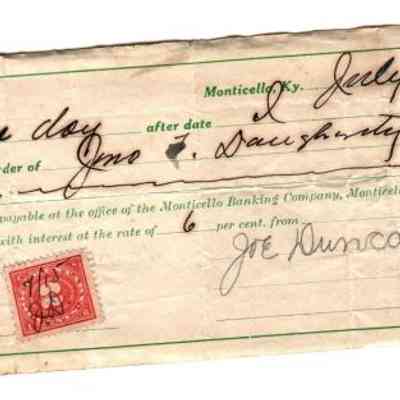 Monticello, Ky. July
day after date I
der of Jno F. Daugherty
payable at the office of the Monticello Banking Company, Monticel
with interest at the rate of 6 per cent. from
JOE DUNCA
7/15
J.D